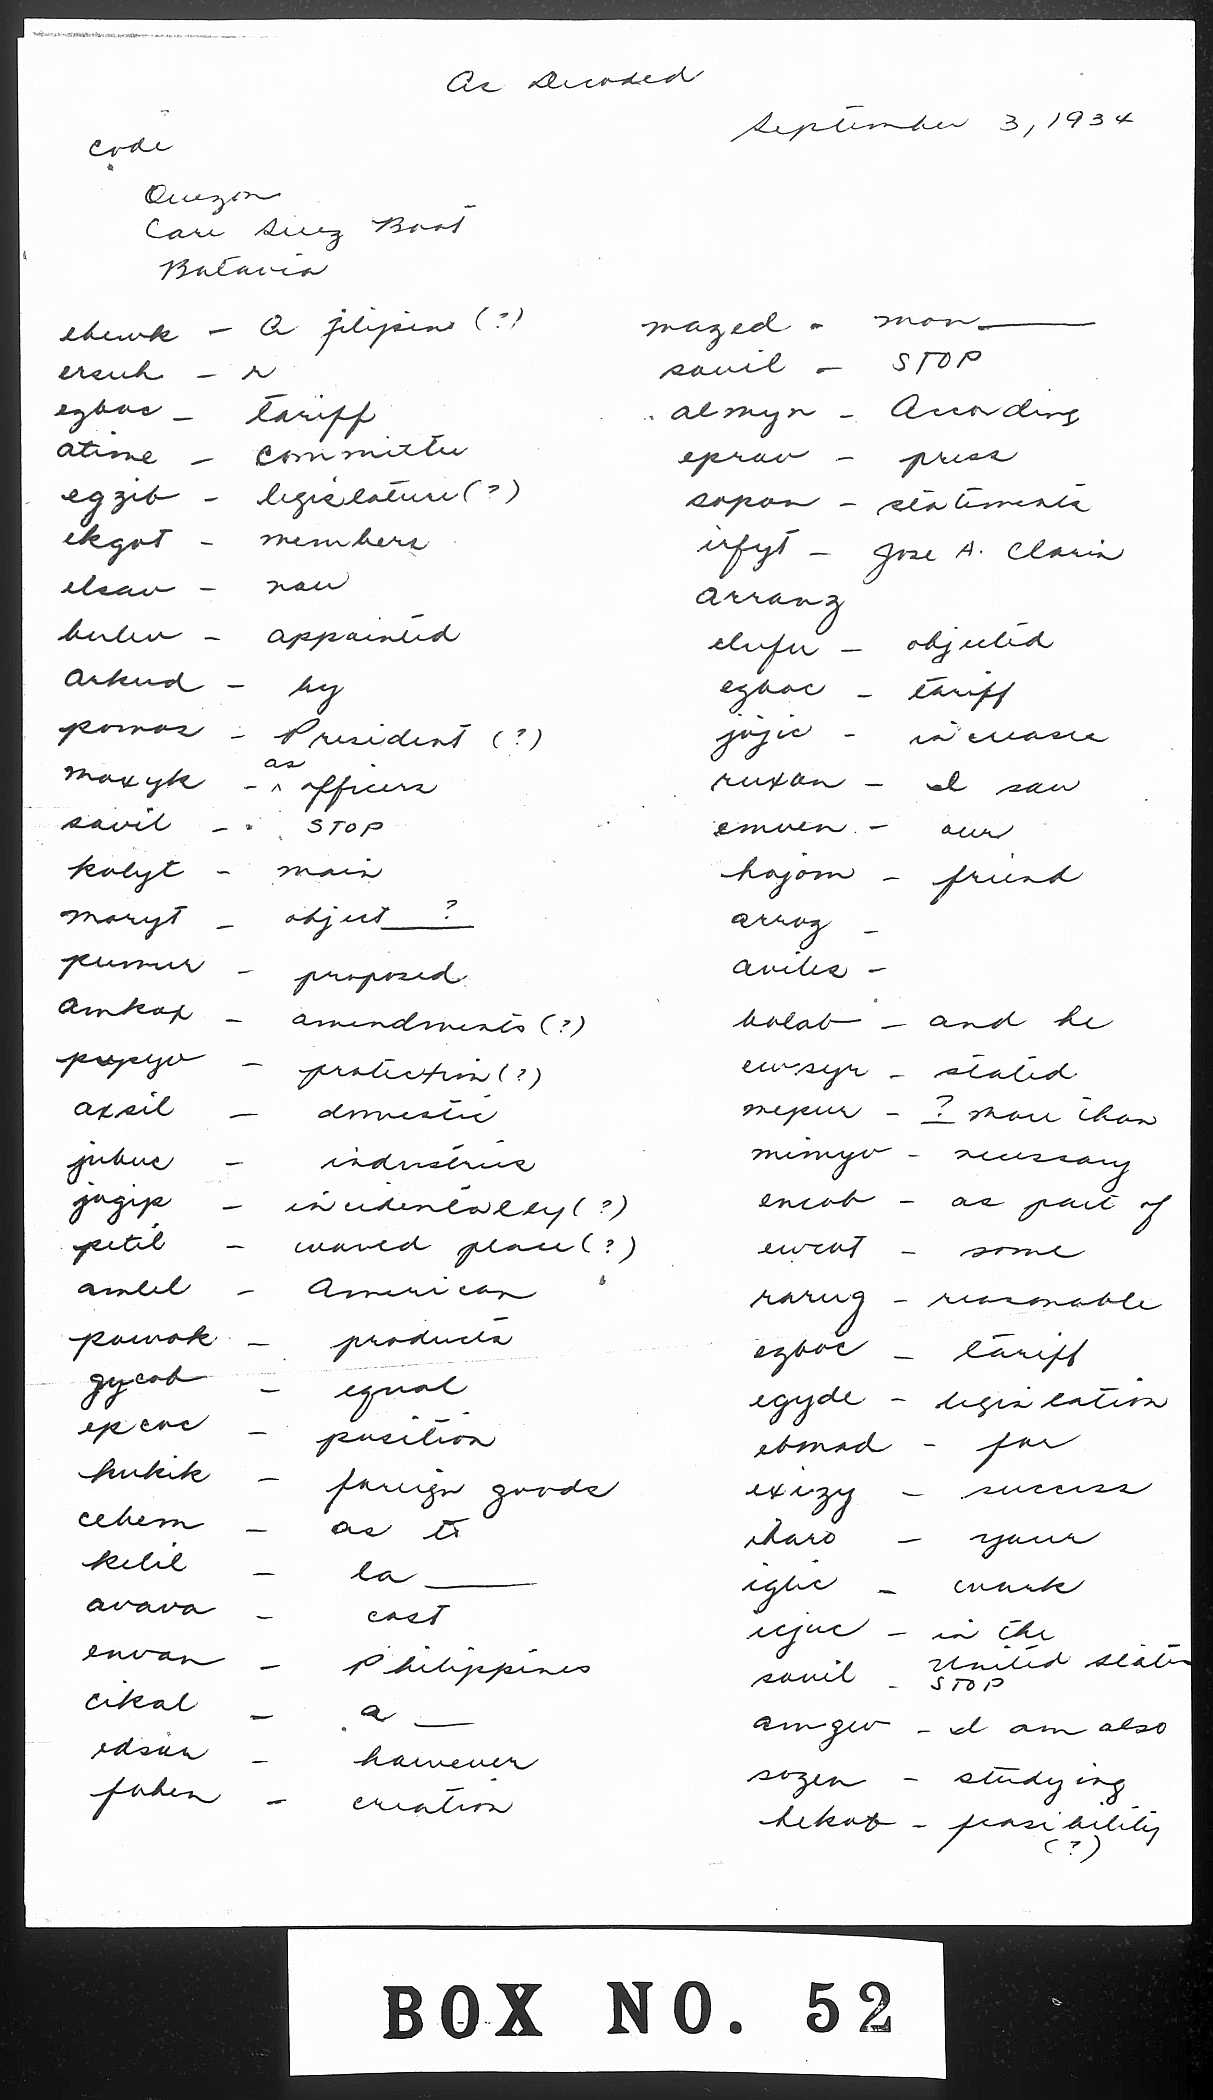 As Decoded
September 3, 1934
Code
Quezon
Care Suez Boat
Batavia
ehewk - a filipino (?)
ersuh - r
egboc - tariff
atime - committee
egzib - legislature (?)
ekgot - members
elsav - now
bulev - appointed
arkud - by
pomos - President (?)
moxyk - as officers
savil - STOP
kolyt - main
moryt - object ?
pumur - proposed
amkop - amendments (?)
pupyo - protection (?)
axsil - domestic
jubuc - industries
jugip - incidentally (?)
petil - waved place (?)
amlel - American
powok - products
gycob - equal
epcoc - position
hukik - foreign goods
cehem - as to
kelil - la
avava - cost
envan - Philippines
cikal - a
edsun - however
fohen - creation
mazed - mon
savil - STOP
almyn - According
eprav - press
sopon - statements
irfyt - Jose A. Clarin
Arranz
elufu - objected
egboc - tariff
jojic - increase
ruxan - I saw
emven - our
hojom - friend
arroz -
aviles -
bolab - and he
ewsyr - stated
mepur - ? more than
mimyo - necessary
encob - as part of
ewcot - some
rarug - reasonable
egboc - tariff
egyde - legislation
ebmad - for
exizy - success
iharo - your
iglic - work
icjuc - in the
United States
savil - STOP
amgew - I am also
sozen - studying
hekob - feasibility
(?)
BOX NO. 52